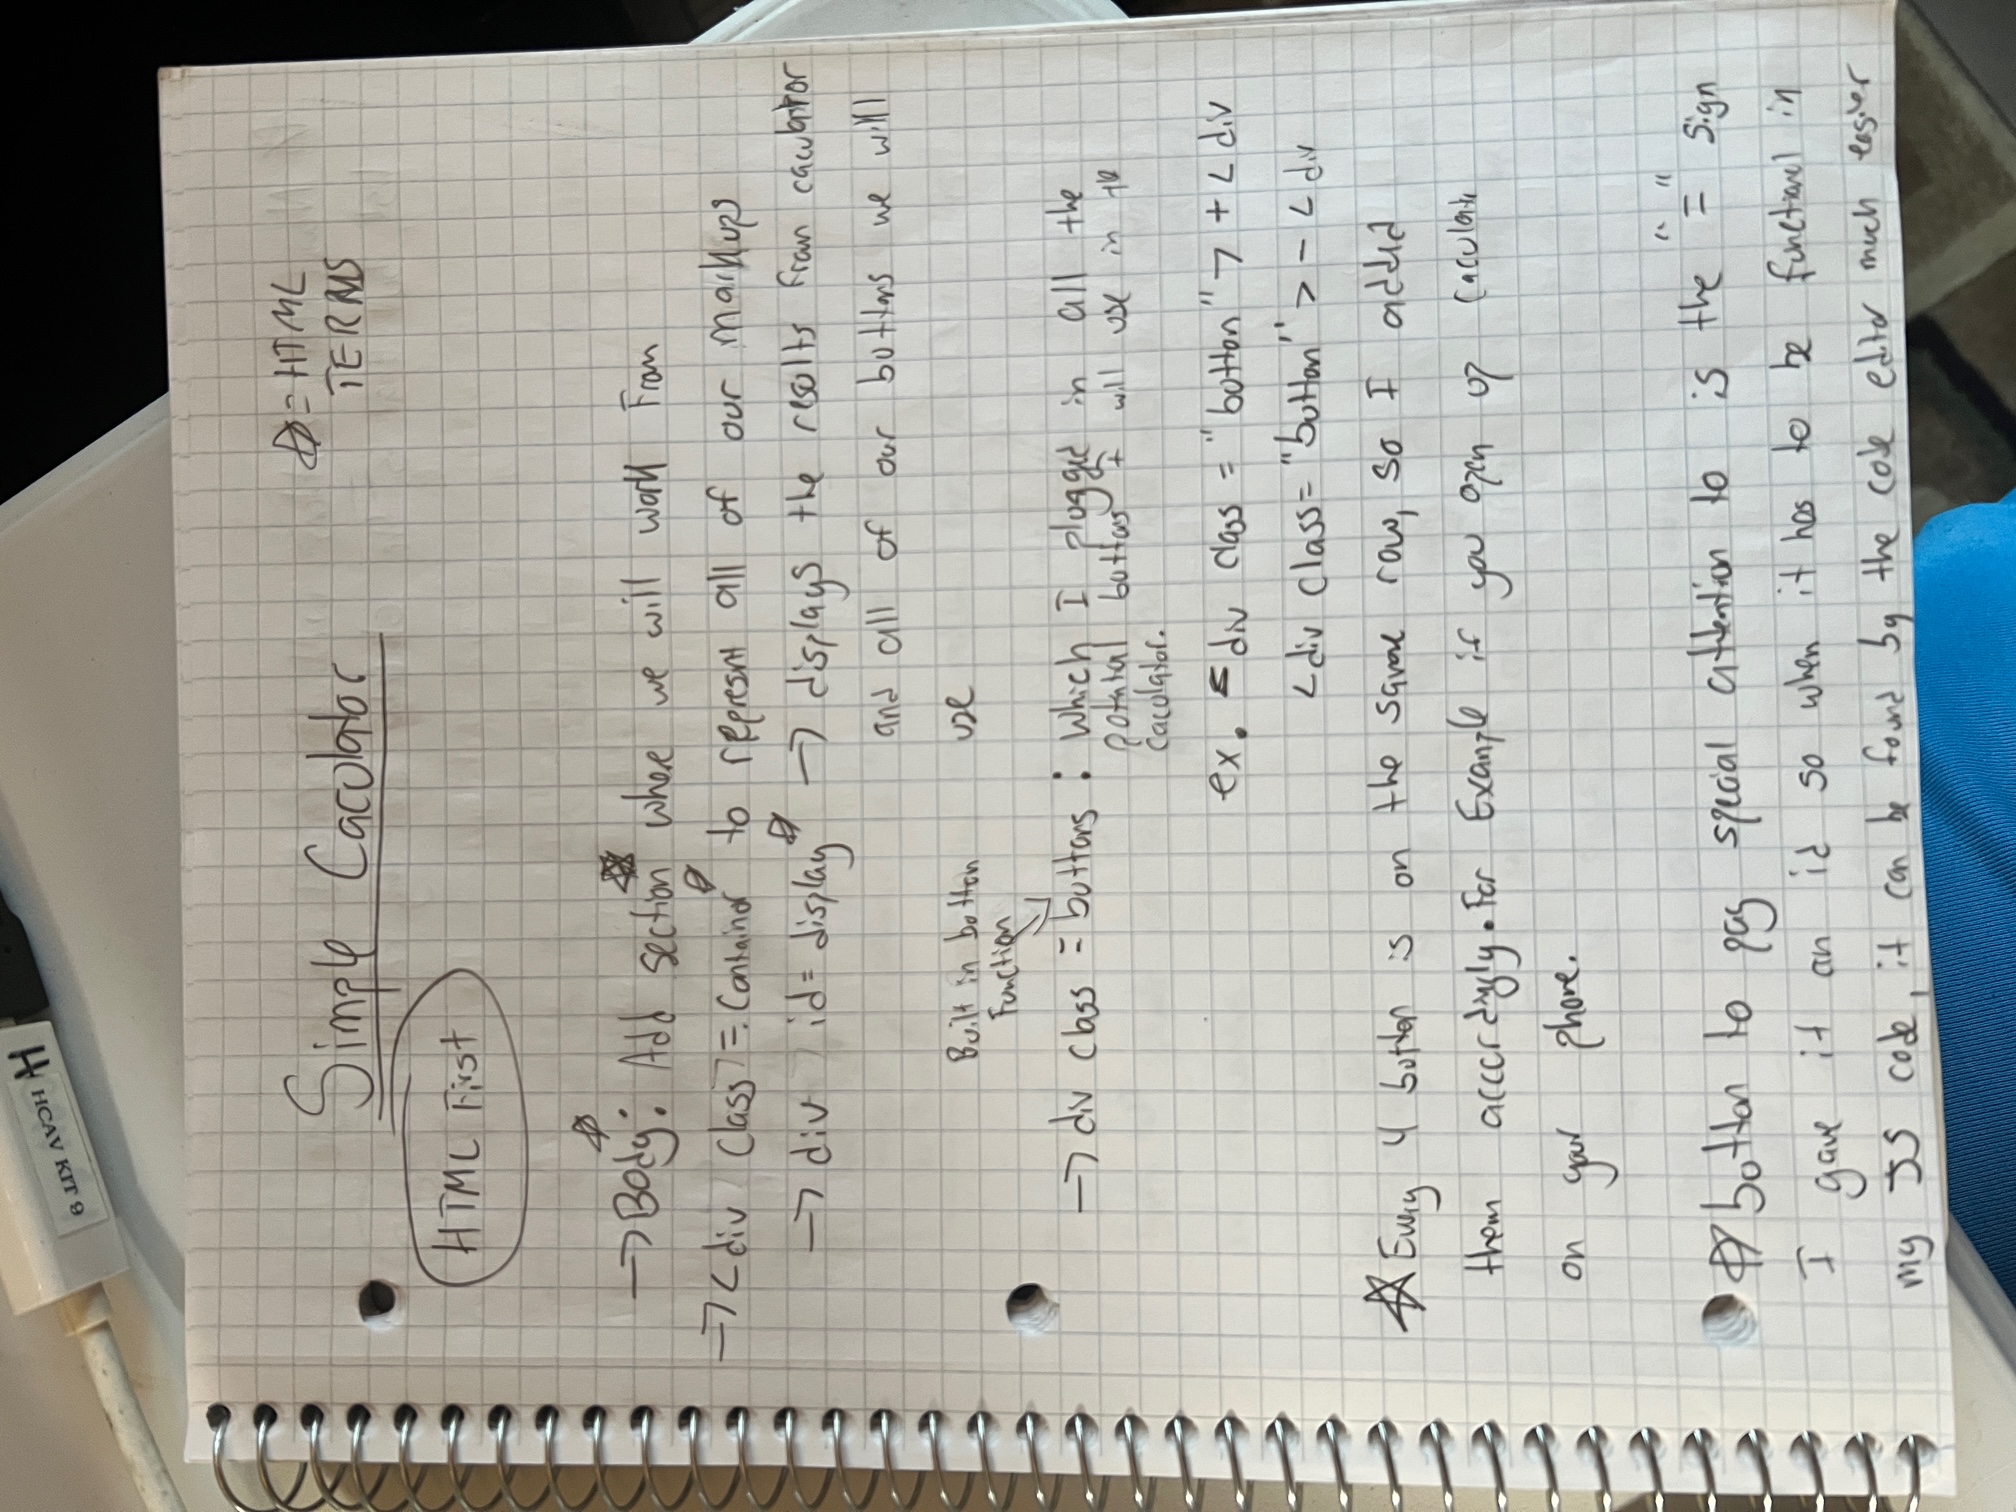 H HCAV KIT 9
Simple Caculator
☆ = HTML
TERMS
HTML First
→ Body: Add section where we will work From
→ <div class> = Container to represnt all of our markups
→ div id = display → displays the results from caculator
and all of our buttons we will
use
Built in button
Function
→ div class = buttons : Which I plugged in all the
potntal buttons I will use in the
caculator.
ex. <div class = "button" > + < div
<div class = "button" > - < div
☆ Every 4 button is on the same row, so I added
them accordingly. For Example if you open up caculator
on your phone.
☆ button to pay special attention to is the "=" sign
I gave it an id so when it has to be functional in
my JS code, it can be found by the code editor much easier